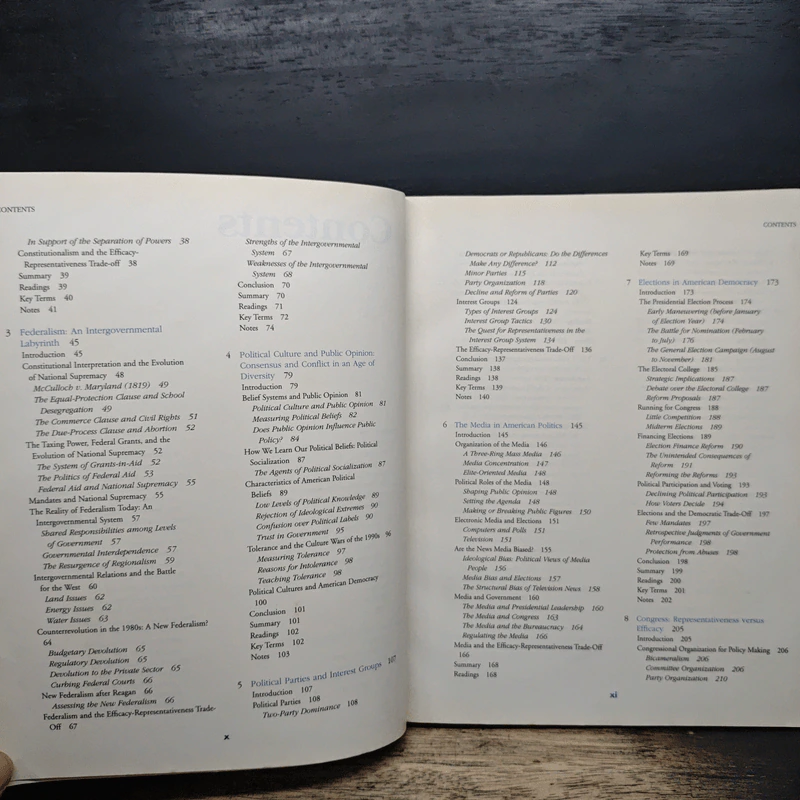 CONTENTS
In Support of the Separation of Powers 38
Constitutionalism and the Efficacy-
Representativeness Trade-off 38
Summary 39
Readings 39
Key Terms 40
Notes 41
3 Federalism: An Intergovernmental
Labyrinth 45
Introduction 45
Constitutional Interpretation and the Evolution
of National Supremacy 48
McCulloch v. Maryland (1819) 49
The Equal-Protection Clause and School
Desegregation 49
The Commerce Clause and Civil Rights 51
The Due-Process Clause and Abortion 52
The Taxing Power, Federal Grants, and the
Evolution of National Supremacy 52
The System of Grants-in-Aid 52
The Politics of Federal Aid 53
Federal Aid and National Supremacy 55
Mandates and National Supremacy 55
The Reality of Federalism Today: An
Intergovernmental System 57
Shared Responsibilities among Levels
of Government 57
Governmental Interdependence 57
The Resurgence of Regionalism 59
Intergovernmental Relations and the Battle
for the West 60
Land Issues 62
Energy Issues 62
Water Issues 63
Counterrevolution in the 1980s: A New Federalism?
64
Budgetary Devolution 65
Regulatory Devolution 65
Devolution to the Private Sector 65
Curbing Federal Courts 66
New Federalism after Reagan 66
Assessing the New Federalism 66
Federalism and the Efficacy-Representativeness Trade-
Off 67
Strengths of the Intergovernmental
System 67
Weaknesses of the Intergovernmental
System 68
Conclusion 70
Summary 70
Readings 71
Key Terms 72
Notes 74
4 Political Culture and Public Opinion:
Consensus and Conflict in an Age of
Diversity 79
Introduction 79
Belief Systems and Public Opinion 81
Political Culture and Public Opinion 81
Measuring Political Beliefs 82
Does Public Opinion Influence Public
Policy? 84
How We Learn Our Political Beliefs: Political
Socialization 87
The Agents of Political Socialization 87
Characteristics of American Political
Beliefs 89
Low Levels of Political Knowledge 89
Rejection of Ideological Extremes 90
Confusion over Political Labels 90
Trust in Government 95
Tolerance and the Culture Wars of the 1990s 96
Measuring Tolerance 97
Reasons for Intolerance 98
Teaching Tolerance 98
Political Cultures and American Democracy
100
Conclusion 101
Summary 101
Readings 102
Key Terms 102
Notes 103
5 Political Parties and Interest Groups 107
Introduction 107
Political Parties 108
Two-Party Dominance 108
x
CONTENTS
Democrats or Republicans: Do the Differences
Make Any Difference? 112
Minor Parties 115
Party Organization 118
Decline and Reform of Parties 120
Interest Groups 124
Types of Interest Groups 124
Interest Group Tactics 130
The Quest for Representativeness in the
Interest Group System 134
The Efficacy-Representativeness Trade-Off 136
Conclusion 137
Summary 138
Readings 138
Key Terms 139
Notes 140
6 The Media in American Politics 145
Introduction 145
Organization of the Media 146
A Three-Ring Mass Media 146
Media Concentration 147
Elite-Oriented Media 148
Political Roles of the Media 148
Shaping Public Opinion 148
Setting the Agenda 148
Making or Breaking Public Figures 150
Electronic Media and Elections 151
Computers and Polls 151
Television 151
Are the News Media Biased? 155
Ideological Bias: Political Views of Media
People 156
Media Bias and Elections 157
The Structural Bias of Television News 158
Media and Government 160
The Media and Presidential Leadership 160
The Media and Congress 163
The Media and the Bureaucracy 164
Regulating the Media 166
Media and the Efficacy-Representativeness Trade-Off
166
Summary 168
Readings 168
Key Terms 169
Notes 169
7 Elections in American Democracy 173
Introduction 173
The Presidential Election Process 174
Early Maneuvering (before January
of Election Year) 174
The Battle for Nomination (February
to July) 176
The General Election Campaign (August
to November) 181
The Electoral College 185
Strategic Implications 187
Debate over the Electoral College 187
Reform Proposals 187
Running for Congress 188
Little Competition 188
Midterm Elections 189
Financing Elections 189
Election Finance Reform 190
The Unintended Consequences of
Reform 191
Reforming the Reforms 193
Political Participation and Voting 193
Declining Political Participation 193
How Voters Decide 194
Elections and the Democratic Trade-Off 197
Few Mandates 197
Retrospective Judgments of Government
Performance 198
Protection from Abuses 198
Conclusion 198
Summary 199
Readings 200
Key Terms 201
Notes 202
8 Congress: Representativeness versus
Efficacy 205
Introduction 205
Congressional Organization for Policy Making 206
Bicameralism 206
Committee Organization 206
Party Organization 210
xi